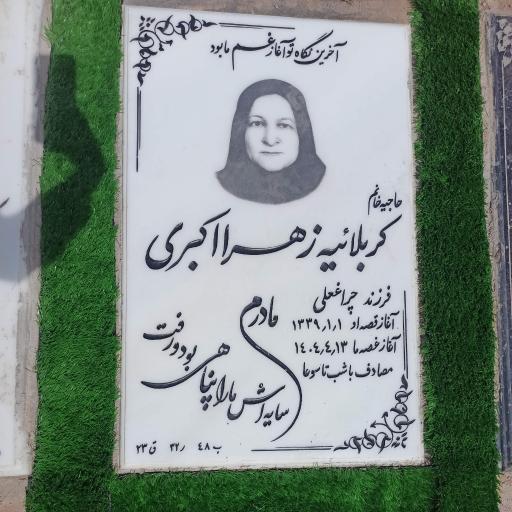 آخرین نگاه تو آغاز غم ما بود
حاجیه خانم
کربلائیه زهرا اکبری
فرزند چراغعلی
آغاز قصه او ۱۳۳۹/۱/۱
آغاز غصه ما ۱۴۰۴/۴/۱۳
مصادف با شب تاسوعا
مادرم
سایه اش ما را پناهی بود و رفت
ب ۴۸ ر ۲۲ ق ۲۳